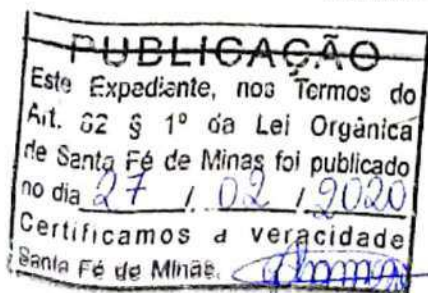 PUBLICAÇÃO
Este Expediente, nos Termos do
Art. 82 § 1º da Lei Orgânica
de Santa Fé de Minas foi publicado
no dia 27 / 02 / 2020
Certificamos a veracidade
Santa Fé de Minas.